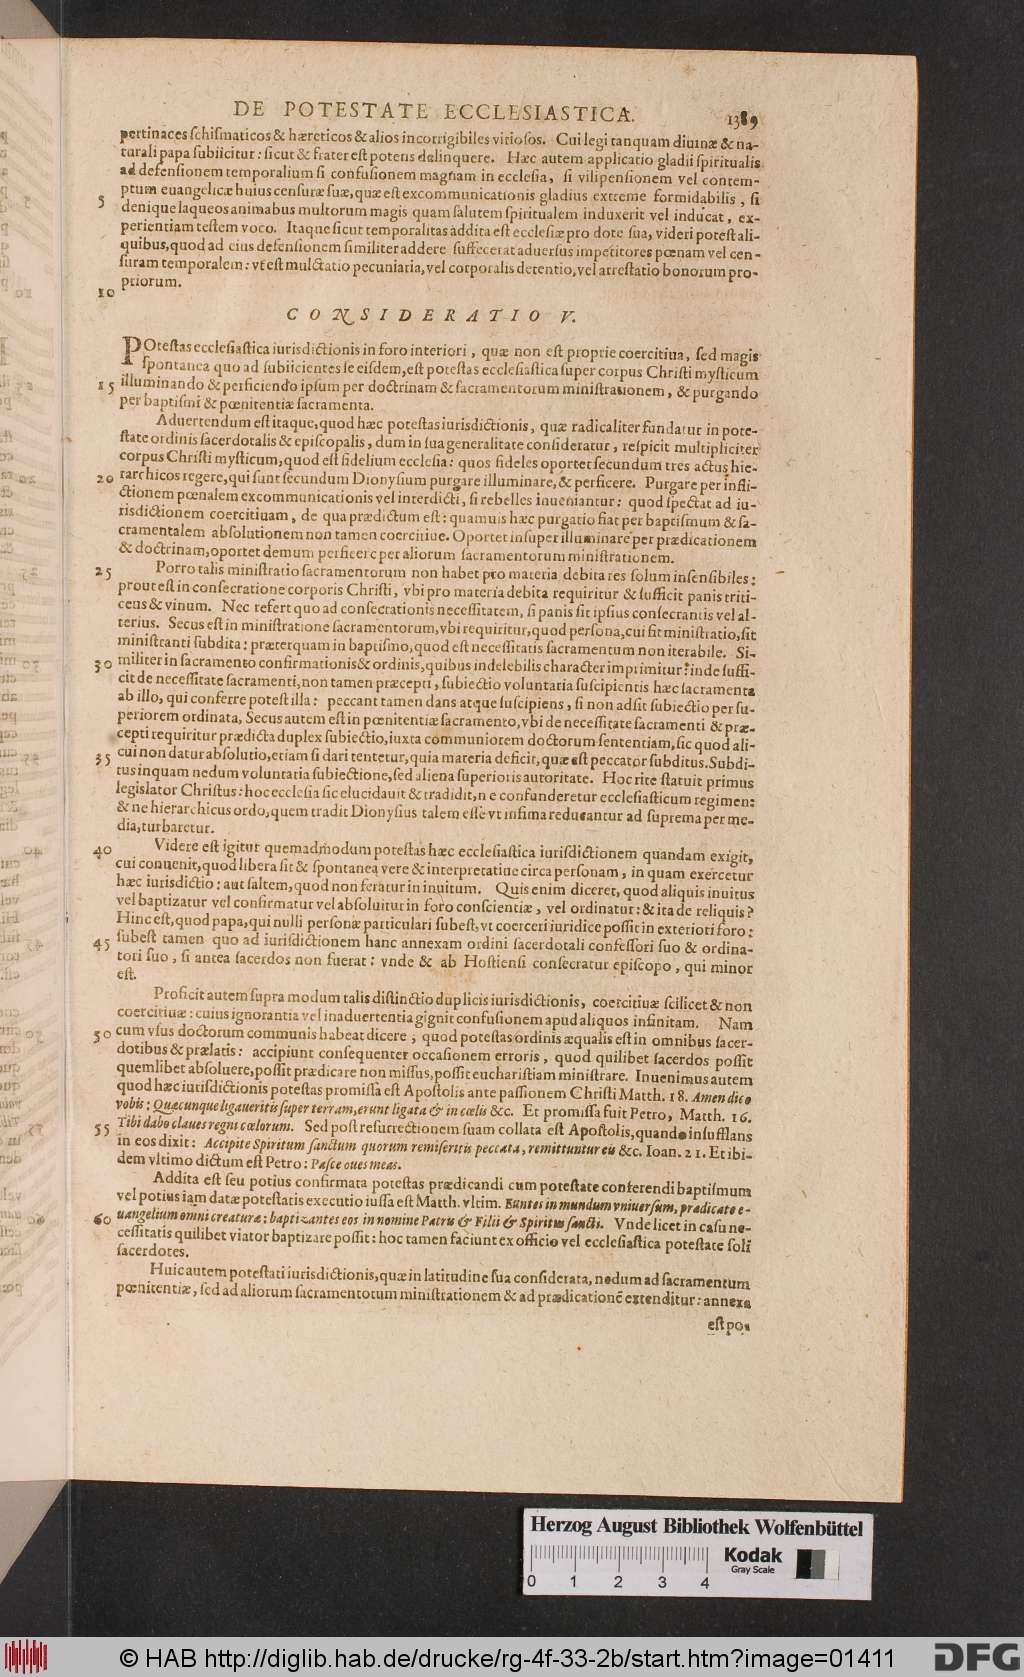 DE POTESTATE ECCLESIASTICA. 1389
pertinaces ſchiſmaticos & hæreticos & alios incorrigibiles vitioſos. Cui legi tanquam diuinæ & na-
turali papa ſubiicitur: ſicut & frater eſt potens delinquere. Hæc autem applicatio gladii ſpiritualis
ad defenſionem temporalium ſi confuſionem magnam in eccleſia, ſi vilipenſionem vel contem-
ptum euangelicæ huius cenſuræ ſuæ, quæ eſt excommunicationis gladius extreme formidabilis, ſi
5 denique laqueos animabus multorum magis quam ſalutem ſpiritualem induxerit vel inducat, ex-
perientiam teſtem voco. Itaque ſicut temporalitas addita eſt eccleſiæ pro dote ſua, videri poteſt ali-
quibus, quod ad eius defenſionem ſimiliter addere ſuffecerat aduerſus impetitores pœnam vel cen-
ſuram temporalem: vt eſt mulctatio pecuniaria, vel corporalis detentio, vel arreſtatio bonorum pro-
10 priorum.
CONSIDERATIO V.
POteſtas eccleſiaſtica iurisdictionis in foro interiori, quæ non eſt proprie coercitiua, ſed magis
ſpontanea quo ad ſubiicientes ſe eiſdem, eſt poteſtas eccleſiaſtica ſuper corpus Chriſti myſticum
15 illuminando & perficiendo ipſum per doctrinam & ſacramentorum miniſtrationem, & purgando
per baptiſmi & pœnitentiæ ſacramenta.
Aduertendum eſt itaque, quod hæc poteſtas iurisdictionis, quæ radicaliter fundatur in pote-
ſtate ordinis ſacerdotalis & epiſcopalis, dum in ſua generalitate conſideratur, reſpicit multipliciter
corpus Chriſti myſticum, quod eſt fidelium eccleſia: quos fideles oportet ſecundum tres actus hie-
20 rarchicos regere, qui ſunt ſecundum Dionyſium purgare illuminare, & perficere. Purgare per infli-
ctionem pœnalem excommunicationis vel interdicti, ſi rebelles inueniantur: quod ſpectat ad iu-
risdictionem coercitiuam, de qua prædictum eſt: quamuis hæc purgatio fiat per baptiſmum & ſa-
cramentalem abſolutionem non tamen coercitiue. Oportet inſuper illuminare per prædicationem
& doctrinam, oportet demum perficere per aliorum ſacramentorum miniſtrationem.
25 Porro talis miniſtratio ſacramentorum non habet pro materia debita res ſolum inſenſibiles:
prout eſt in conſecratione corporis Chriſti, vbi pro materia debita requiritur & ſufficit panis triti-
ceus & vinum. Nec refert quo ad conſecrationis neceſſitatem, ſi panis ſit ipſius conſecrantis vel al-
terius. Secus eſt in miniſtratione ſacramentorum, vbi requiritur, quod perſona, cui fit miniſtratio, ſit
miniſtranti ſubdita: præterquam in baptiſmo, quod eſt neceſſitatis ſacramentum non iterabile. Si-
30 militer in ſacramento confirmationis & ordinis, quibus indelebilis character imprimitur: inde ſuffi-
cit de neceſſitate ſacramenti, non tamen præcepti, ſubiectio voluntaria ſuſcipientis hæc ſacramenta
ab illo, qui conferre poteſt illa: peccant tamen dans atque ſuſcipiens, ſi non adſit ſubiectio per ſu-
periorem ordinata, Secus autem eſt in pœnitentiæ ſacramento, vbi de neceſſitate ſacramenti & præ-
cepti requiritur prædicta duplex ſubiectio, iuxta communiorem doctorum ſententiam, ſic quod ali-
35 cui non datur abſolutio, etiam ſi dari tentetur, quia materia deficit, quæ eſt peccator ſubditus. Subdi-
tus inquam nedum voluntaria ſubiectione, ſed aliena ſuperioris autoritate. Hoc rite ſtatuit primus
legislator Chriſtus: hoc eccleſia ſic elucidauit & tradidit, ne confunderetur eccleſiaſticum regimen:
& ne hierarchicus ordo, quem tradit Dionyſius talem eſſe vt infima reducantur ad ſuprema per me-
dia, turbaretur.
40 Videre eſt igitur quemadmodum poteſtas hæc eccleſiaſtica iurisdictionem quandam exigit,
cui conuenit, quod libera ſit & ſpontanea vere & interpretatiue circa perſonam, in quam exercetur
hæc iurisdictio: aut ſaltem, quod non feratur in inuitum. Quis enim diceret, quod aliquis inuitus
vel baptizatur vel confirmatur vel abſoluitur in foro conſcientiæ, vel ordinatur: & ita de reliquis?
Hinc eſt, quod papa, qui nulli perſonæ particulari ſubeſt, vt coerceri iuridice poſſit in exteriori foro:
45 ſubeſt tamen quo ad iurisdictionem hanc annexam ordini ſacerdotali confeſſori ſuo & ordina-
tori ſuo, ſi antea ſacerdos non fuerat: vnde & ab Hoſtienſi conſecratur epiſcopo, qui minor
eſt.
Proficit autem ſupra modum talis diſtinctio duplicis iurisdictionis, coercitiuæ ſcilicet & non
coercitiuæ: cuius ignorantia vel inaduertentia gignit confuſionem apud aliquos infinitam. Nam
50 cum vſus doctorum communis habeat dicere, quod poteſtas ordinis æqualis eſt in omnibus ſacer-
dotibus & prælatis: accipiunt conſequenter occaſionem erroris, quod quilibet ſacerdos poſſit
quemlibet abſoluere, poſſit prædicare non miſſus, poſſit euchariſtiam miniſtrare. Inuenimus autem
quod hæc iurisdictionis poteſtas promiſſa eſt Apoſtolis ante paſſionem Chriſti Matth. 18. Amen dico
vobis: Quæcunque ligaueritis ſuper terram, erunt ligata & in cœlis &c. Et promiſſa fuit Petro, Matth. 16.
55 Tibi dabo claues regni cœlorum. Sed poſt reſurrectionem ſuam collata eſt Apoſtolis, quando inſufflans
in eos dixit: Accipite Spiritum ſanctum quorum remiſeritis peccata, remittuntur eis &c. Ioan. 21. Et ibi-
dem vltimo dictum eſt Petro: Paſce oues meas.
Addita eſt ſeu potius confirmata poteſtas prædicandi cum poteſtate conferendi baptiſmum
vel potius iam datæ poteſtatis executio iuſſa eſt Matth. vltim. Euntes in mundum vniuerſum, prædicate e-
60 uangelium omni creaturæ: baptizantes eos in nomine Patris & Filii & Spiritus ſancti. Vnde licet in caſu ne-
ceſſitatis quilibet viator baptizare poſſit: hoc tamen faciunt ex officio vel eccleſiaſtica poteſtate ſoli
ſacerdotes.
Huic autem poteſtati iurisdictionis, quæ in latitudine ſua conſiderata, nedum ad ſacramentum
pœnitentiæ, ſed ad aliorum ſacramentorum miniſtrationem & ad prædicationē extenditur: annexa
eſt po-
Herzog August Bibliothek Wolfenbüttel
Kodak
Gray Scale
0 1 2 3 4
© HAB http://diglib.hab.de/drucke/rg-4f-33-2b/start.htm?image=01411
DFG